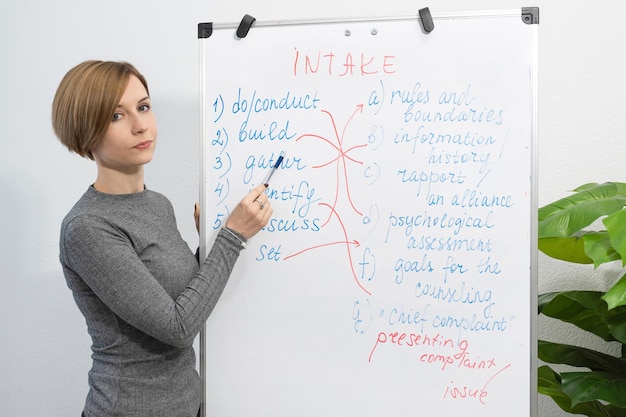 INTAKE
1) do/conduct
2) build
3) gather
4) identify
5) discuss
set
a) rules and
boundaries
b) information/
history
c) rapport
an alliance
d) psychological
assessment
f) goals for the
counseling
g) "chief complaint"
presenting
complaint
issue